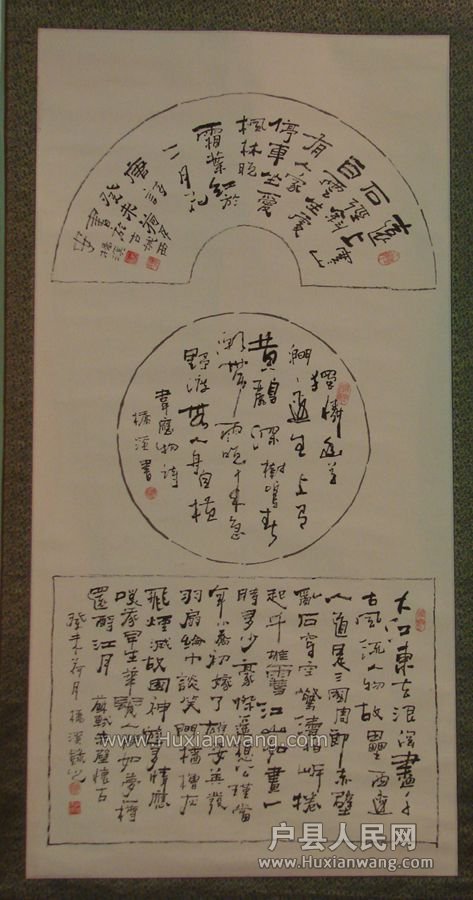 遠上寒山
石徑斜
白雲生處
有人家
停車坐愛
楓林晚
霜葉紅於
二月花
唐詩
癸未
書於古城西
安楊溪
獨憐幽草
澗邊生上有
黃鸝深樹鳴春
潮帶雨晚來急
野渡無人舟自橫
韋應物詩
楊溪書
大江東去浪淘盡千
古風流人物故壘西邊
人道是三國周郎赤壁
亂石穿空驚濤拍岸捲
起千堆雪江山如畫一
時多少豪傑遙想公瑾當
年小喬初嫁了雄姿英發
羽扇綸巾談笑間檣櫓灰
飛煙滅故國神遊多情應
笑我早生華髮人間如夢一樽
還酹江月 蘇軾赤壁懷古
癸未荷月楊溪
www.Huxianwang.com
户县人民网
www.Huxianwang.com